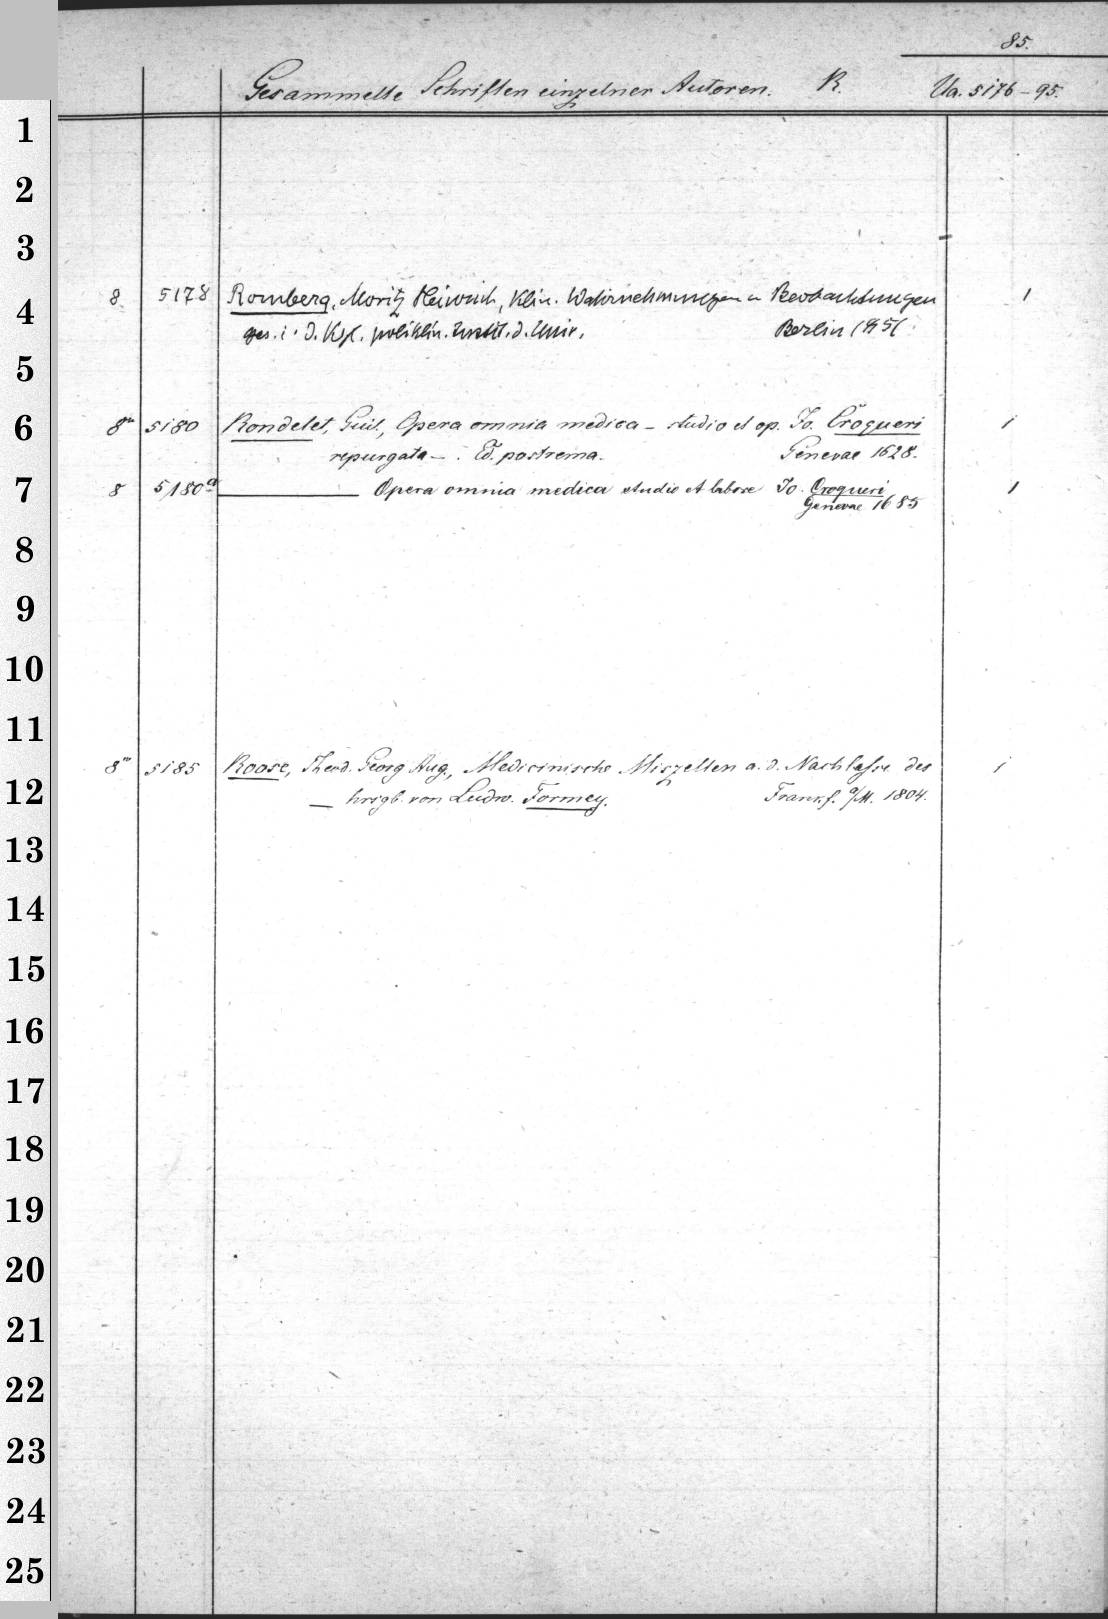 85.
Gesammelte Schriften einzelner Autoren. R. Ua. 5176-95.
1
2
3
8 5178 Romberg, Moritz Heinrich, Klin. Wahrnehmungen u Beobachtungen 1
4
ges. i. d. Kgl. poliklin. Instit. d. Univ. Berlin 1851.
5
6 8vo 5180 Rondelet, Guil., Opera omnia medica - studio et op. Jo. Croqueri 1
repurgata - . Ed. postrema. Genevae 1628.
7 8 5180a ——— Opera omnia medica studio et labore Jo. Croqueri 1
Genevae 1685
8
9
10
11
8vo 5185 Roose, Theod. Georg Aug., Medicinische Miszellen a. d. Nachlasse des 1
12 — hrsgb. von Ludw. Formey. Frankf. a/M. 1804.
13
14
15
16
17
18
19
20
21
22
23
24
25